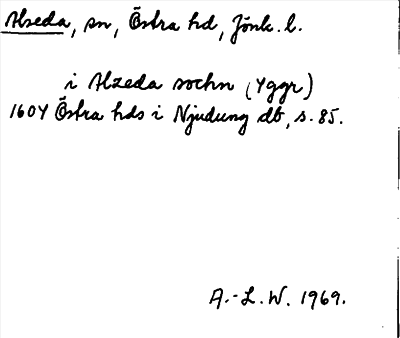 Alseda, sn, Östra hd, Jönk. l.
i Alzeda sochn (Yggr)
1604 Östra hds i Njudung db, s. 85.
A.-L.W. 1969.